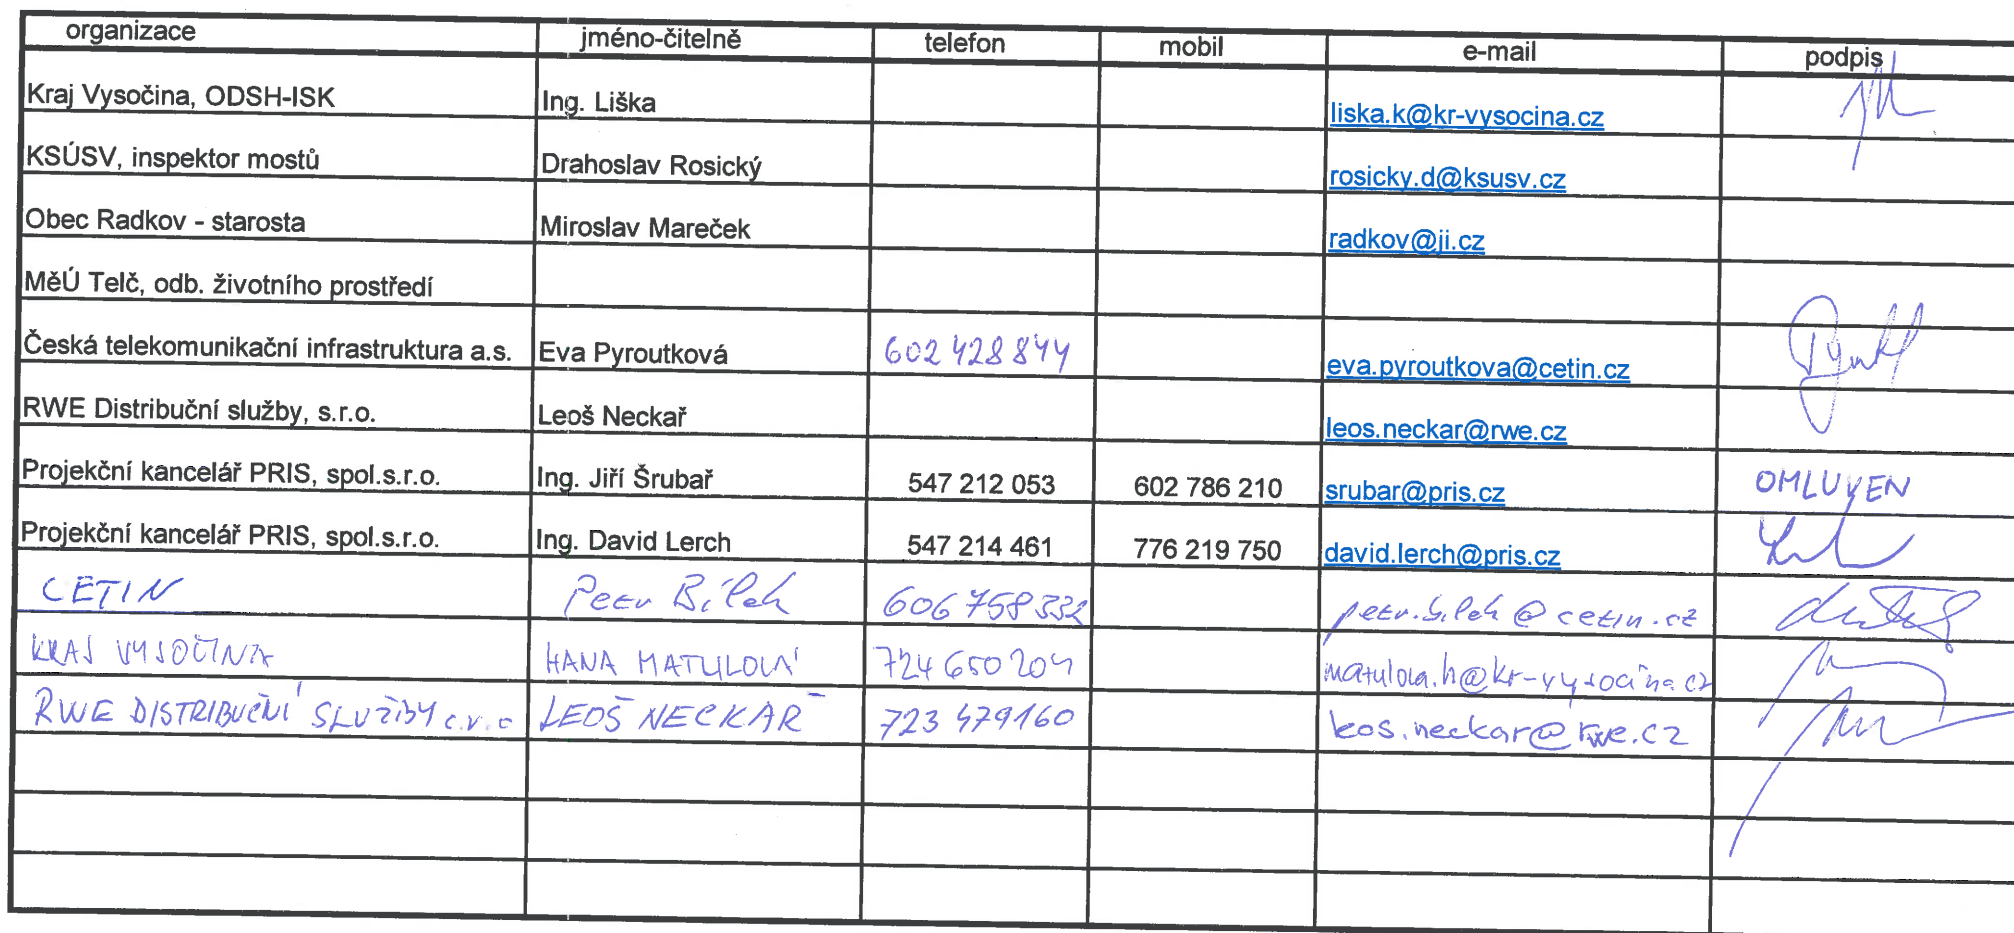 organizace jméno-čitelně telefon mobil e-mail podpis
Kraj Vysočina, ODSH-ISK Ing. Liška liska.k@kr-vysocina.cz
KSÚSV, inspektor mostů Drahoslav Rosický rosicky.d@ksusv.cz
Obec Radkov - starosta Miroslav Mareček radkov@ji.cz
MěÚ Telč, odb. životního prostředí
Česká telekomunikační infrastruktura a.s. Eva Pyroutková 602 428 844 eva.pyroutkova@cetin.cz
RWE Distribuční služby, s.r.o. Leoš Neckař leos.neckar@rwe.cz
Projekční kancelář PRIS, spol.s.r.o. Ing. Jiří Šrubař 547 212 053 602 786 210 srubar@pris.cz OMLUVEN
Projekční kancelář PRIS, spol.s.r.o. Ing. David Lerch 547 214 461 776 219 750 david.lerch@pris.cz
CETIN Petr Bílek 606 758 332 petr.bilek@cetin.cz
KRAJ VYSOČINA HANA MATULOVÁ 724 650 204 matulova.h@kr-vysocina.cz
RWE DISTRIBUČNÍ SLUŽBY s.r.o LEOŠ NECKAŘ 723 479160 leos.neckar@rwe.cz